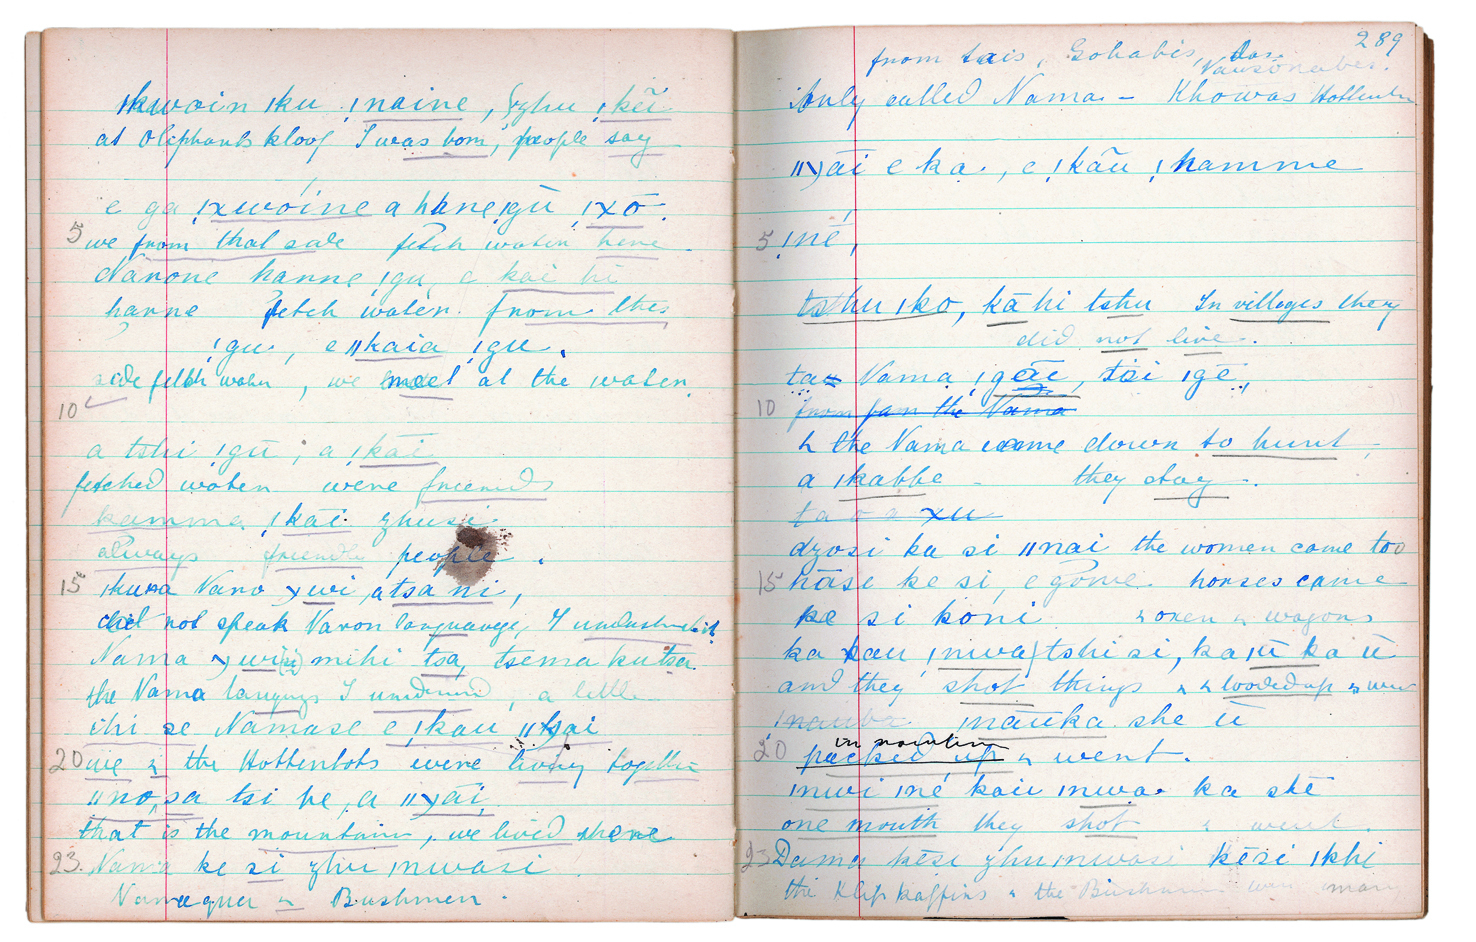 ǀkwoin ǀku ǀnaine, zhu ǀkēī
at Olifants kloof I was born, people say
e ga ǃxwóine a hane ǀgū ǃxō.
5 we from that side fetch water here
Narone hanne ǀgu, e kai hi
hanne fetch water from this
ǀgu, e ǁkaia ǀgu.
side fetch water, we meet at the water
10
a tshi ǀgū, a ǀkāī
fetched water were friends
kamma ǀkāi zhusi
always friendly people.
15 ǀkuna Naro xwi, atsa ni,
did not speak Naron language, I understand it
Nama xwi mihi tsa, tsema ku tsa
the Nama language I understand, a little
ihi se Namase e ǀkau ǁxai
20 we & the Hottentots were living together
ǁno, sa tsi he, a ǁxāi,
that is the mountain, we lived there
23. Nama ke si zhu ǀnwasi
Namaqua & Bushmen.
289
from Gais, Gobabis,
only called Nama - Khowas Hottentot
ǁxāi e ka, e ǀkāū ǀhamme
5 ǀné,
tshu ǀko, kāhi tshu In villages they
did not live.
Nama ǀgāē, tsi ǀgē,
10 from the Nama
the Nama came down to hunt,
a ǀkabbe - they stay.
ta o a xu
dzosi ka si ǁnai the women came too
15 hāse ke si, e gome horses came
ke si koni & oxen & wagons
ka kau ǀnwa tshi si, ka ǀū ka ū
and they shot things & & loaded up & went
ǀnauba ǀnaūka she ū
in mountain
20 packed up & went.
ǀnwi ǀné kau ǀnwa ka she
one mouth they shot & went.
23 Dama kēsi zhu ǀnwasi kēsi ǀkhi
the Klip kaffirs & the Bushmen were many